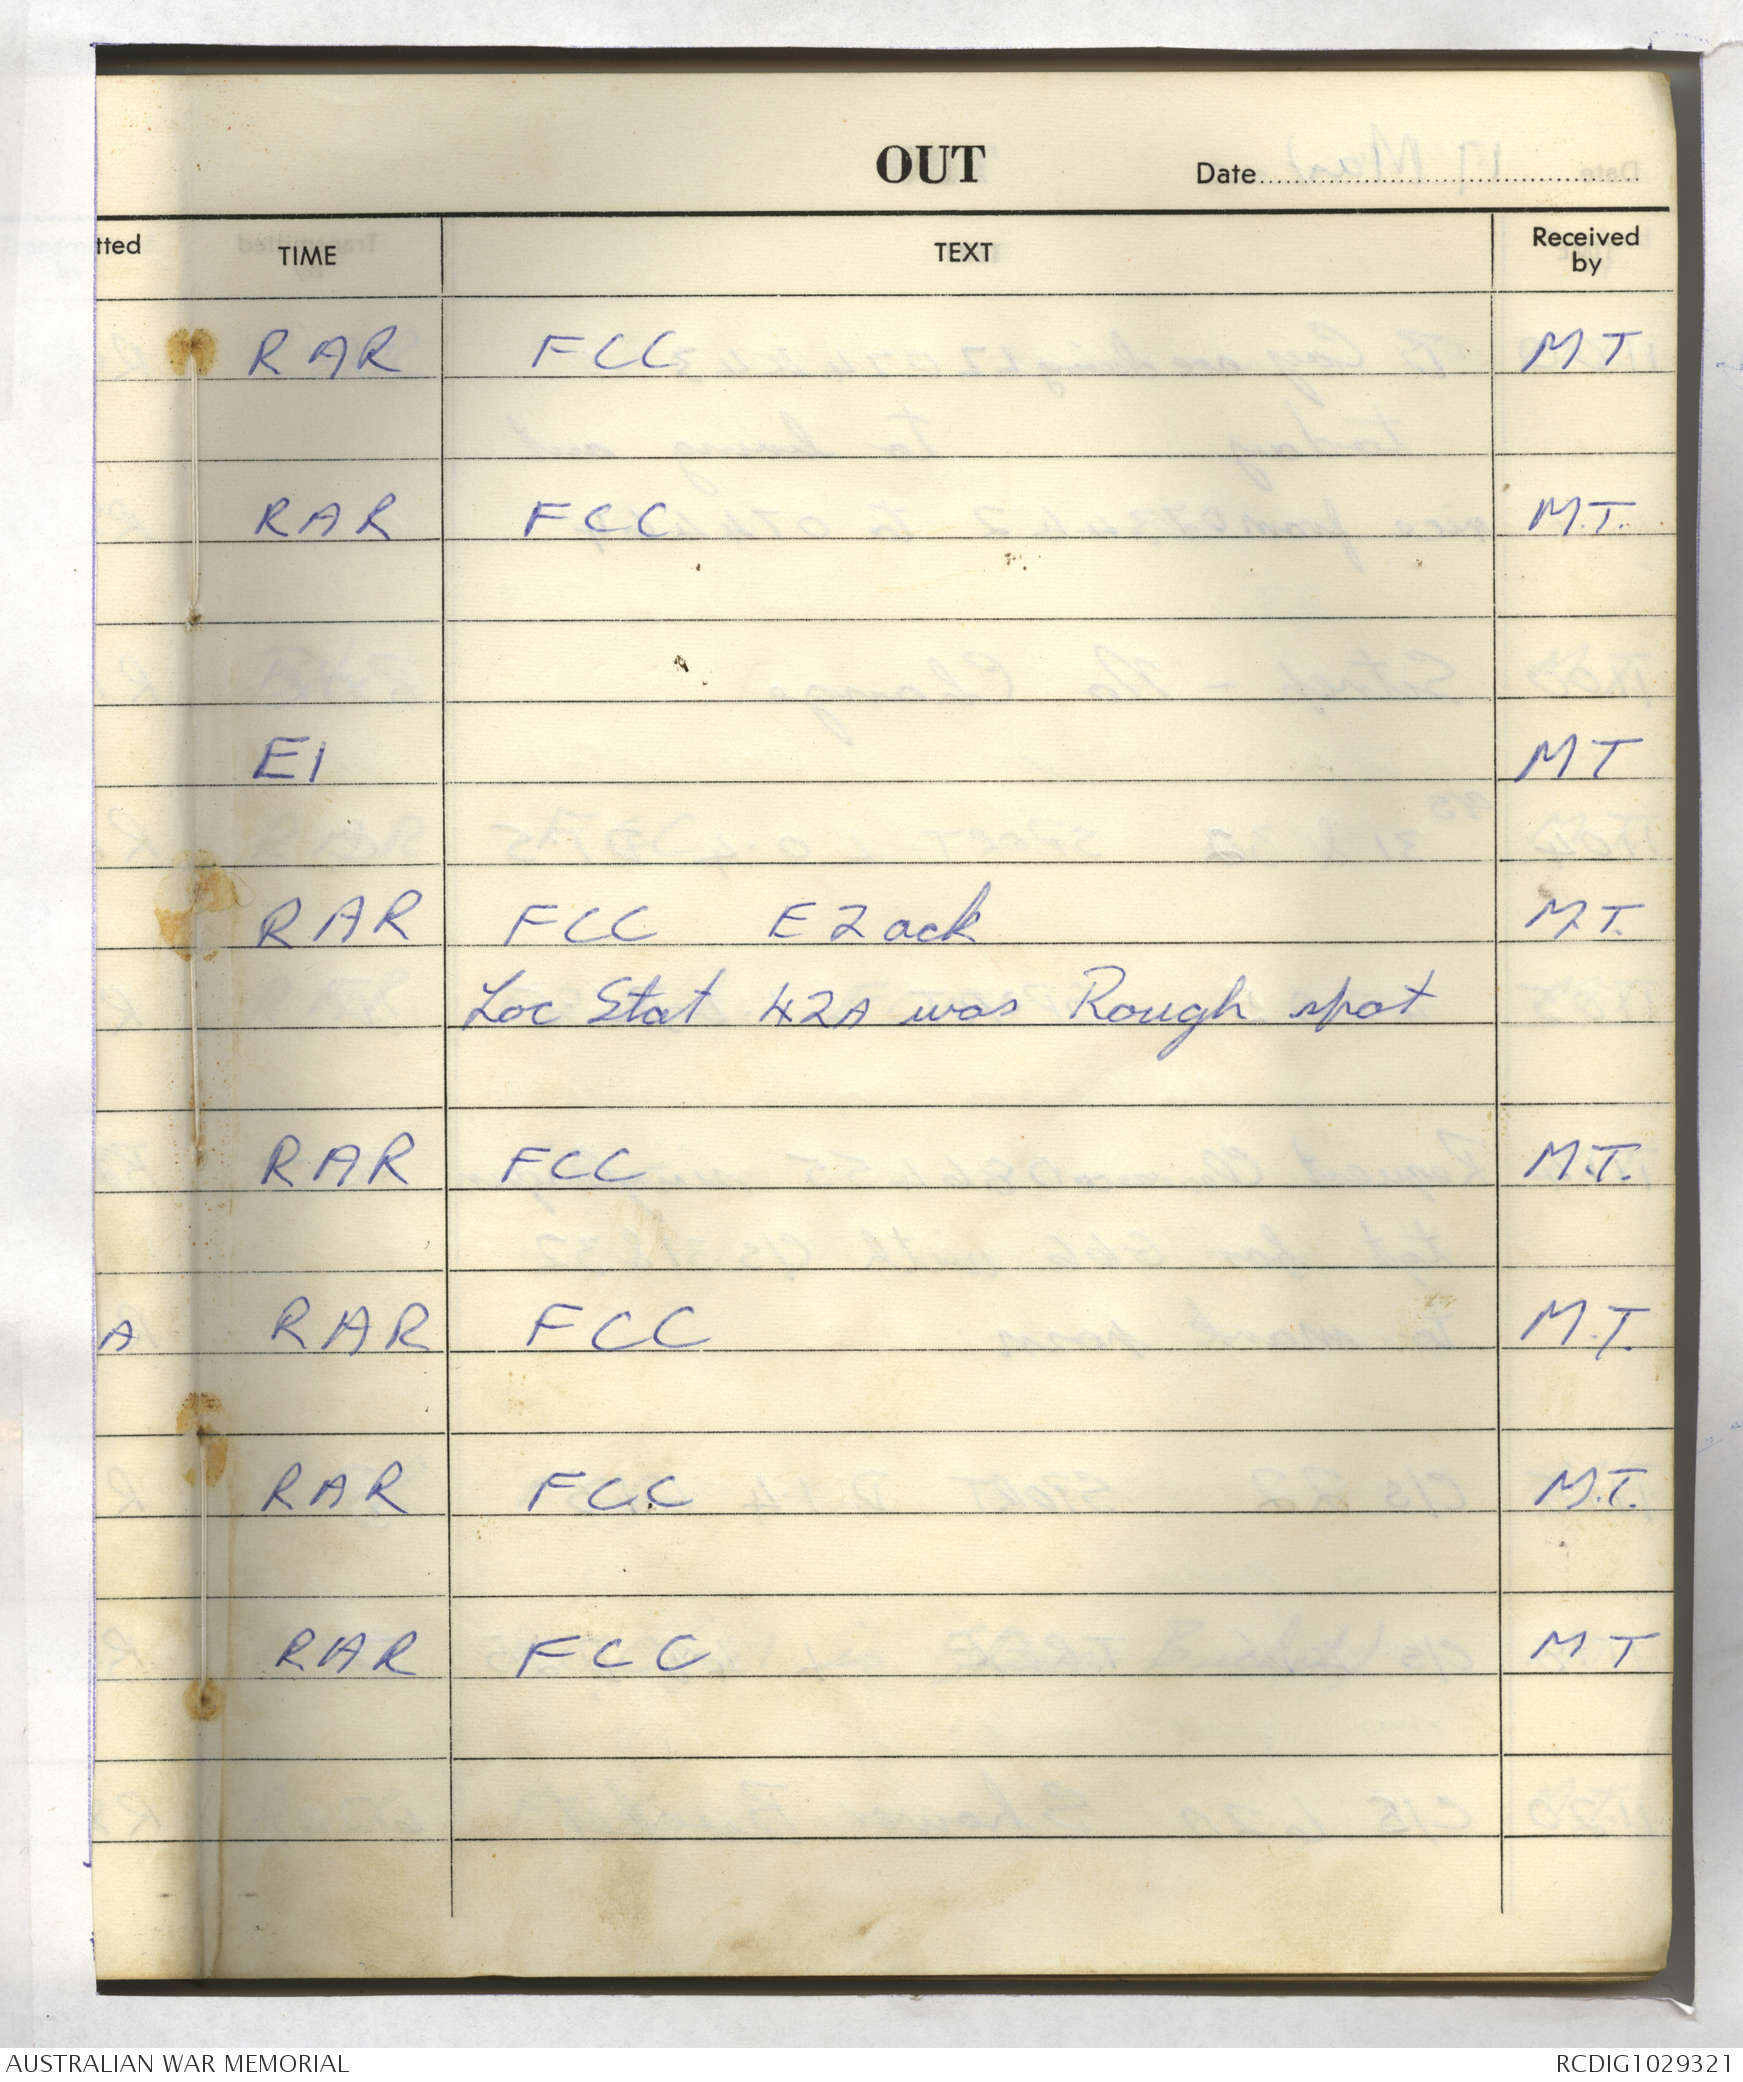 OUT
Date
tted TIME TEXT Received by
RAR FCC MT
RAR FCC M.T.
E1 MT
RAR FCC E2 ack M.T.
Loc Stat 42A was Rough spot
RAR FCC M.T.
A RAR FCC M.T.
RAR FCC M.T.
RAR FCC MT
AUSTRALIAN WAR MEMORIAL RCDIG1029321